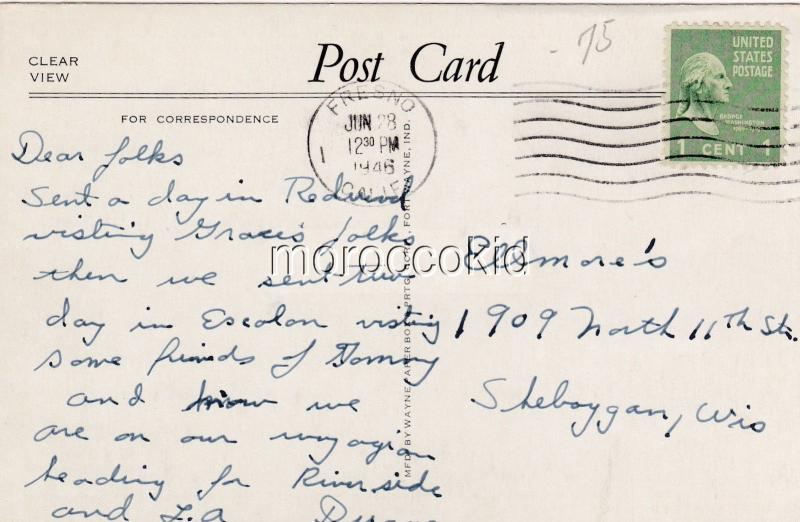 CLEAR
VIEW
Post Card
75
UNITED
STATES
POSTAGE
GEORGE
WASHINGTON
1 CENT 1
FRESNO
JUN 28
12 30 PM
1946
CALIF.
1
FOR CORRESPONDENCE
Dear folks
Sent a day in
visting Grace's folks
then we sent
day in Escalon visting
some friends of Tommy
and now we
are on our way again
heading for Riverside
and L.A
morocckid
MFD. BY WAYNE PAPER BOX & PRTG. CORP., FORT WAYNE, IND.
Ellmore's
1909 North 11th Str.
Sheboygan, Wis